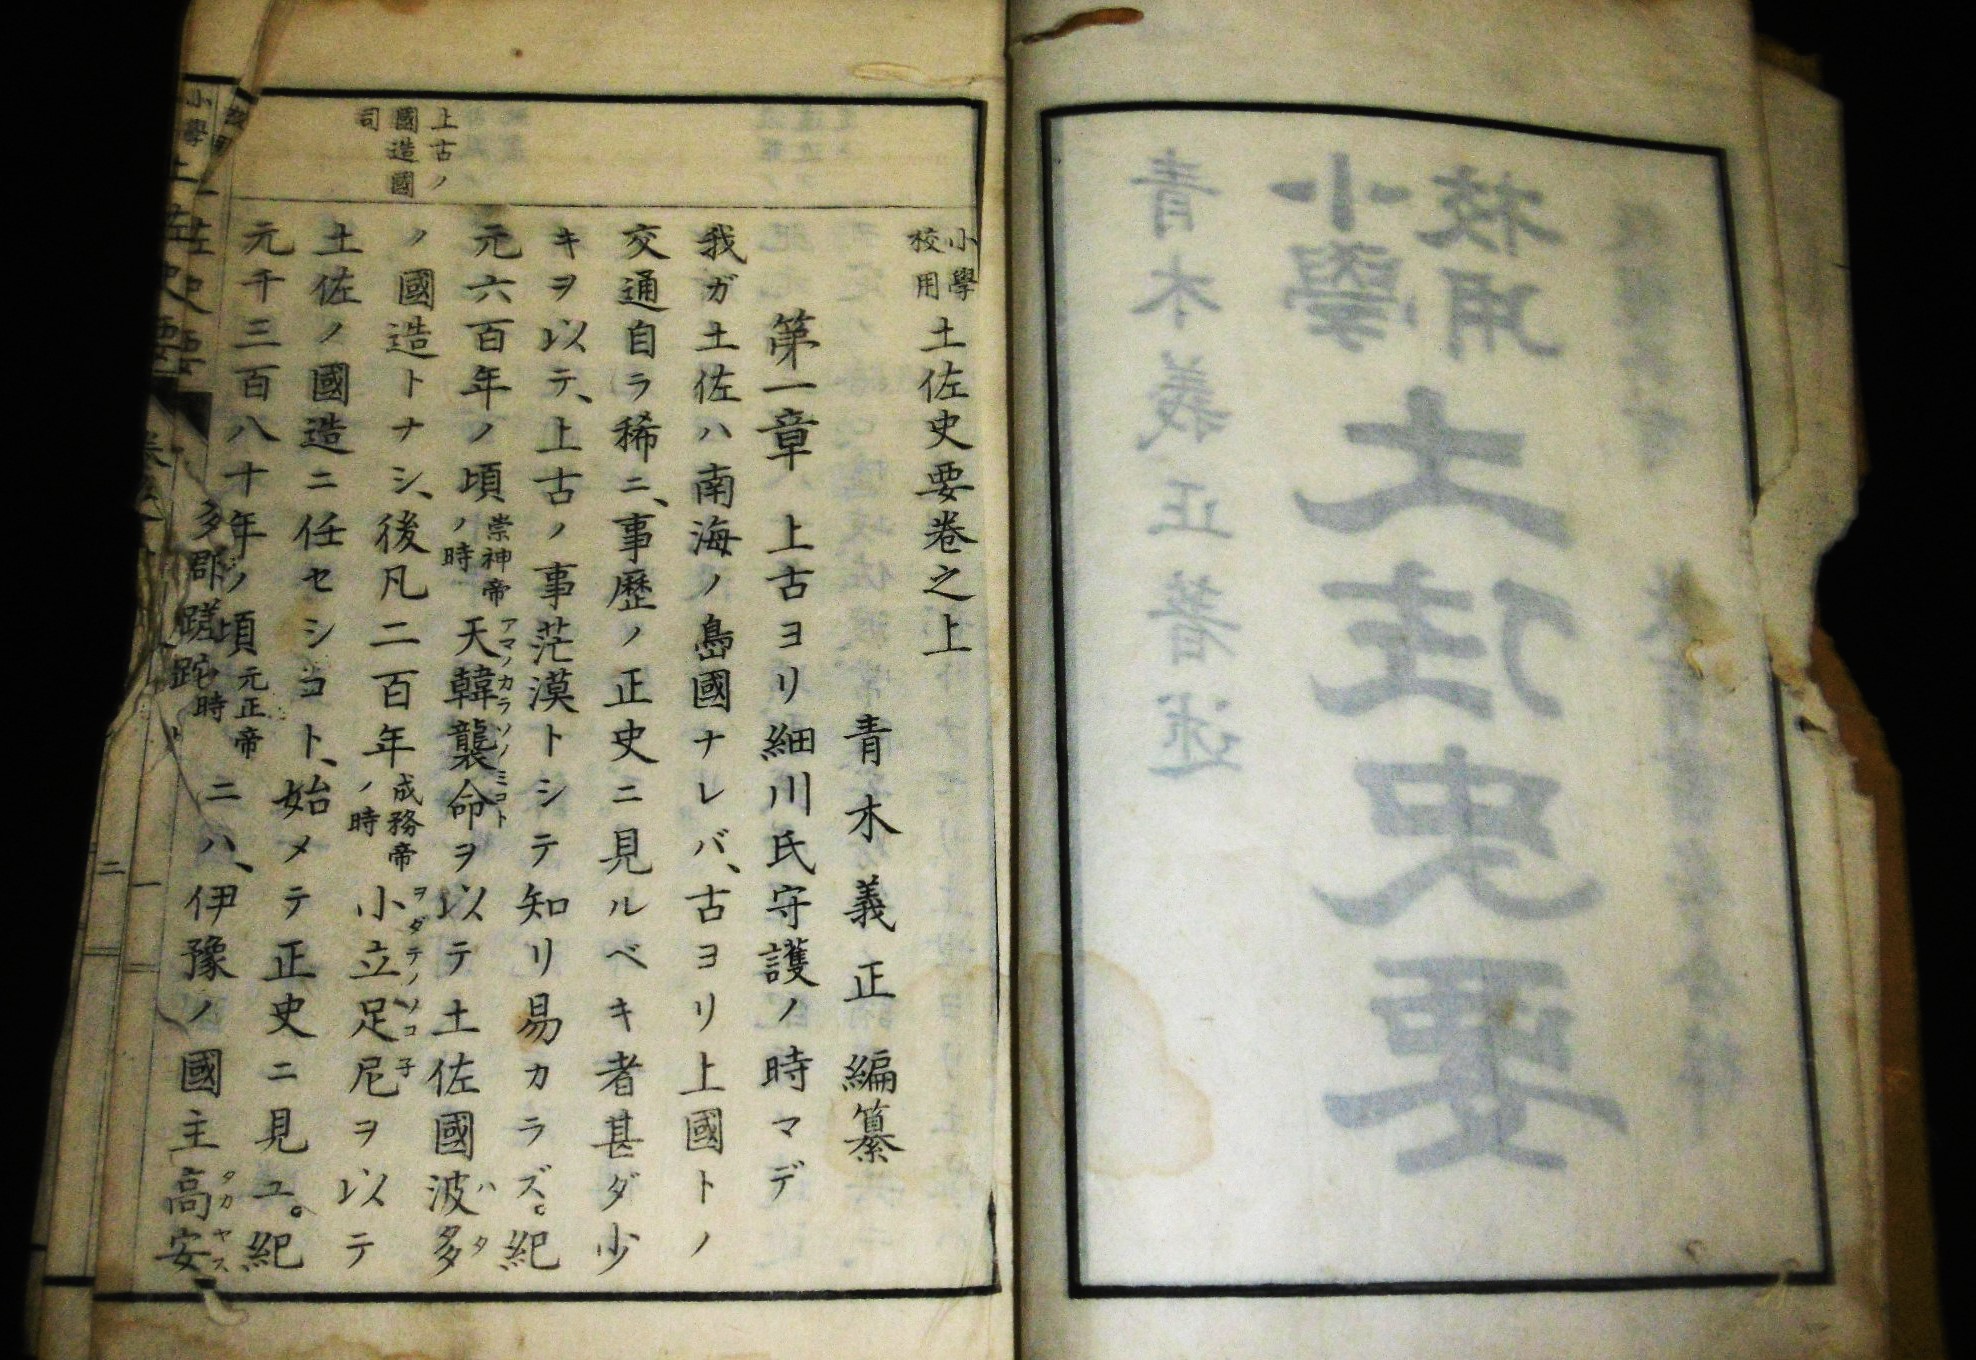 小學
校用
土佐史要
青木義正著述
小學
校用
土佐史要卷之上
青木義正編纂
第一章 上古ヨリ細川氏守護ノ時マデ
我ガ土佐ハ南海ノ島國ナレバ、古ヨリ上國トノ
交通自ラ稀ニ、事歴ノ正史ニ見ルベキ者甚ダ少
キヲ以テ、上古ノ事茫漠トシテ知リ易カラズ。紀
元六百年ノ頃崇神帝ノ時天韓襲命アマノカラソノミコトヲ以テ土佐國波多ハタ
ノ國造トナシ、後凡二百年成務帝ノ時小立足尼ヲダテノソコ子ヲ以テ
土佐ノ國造ニ任セシコト、始メテ正史ニ見ユ。紀
元千三百八十年ノ頃元正帝ノ時ニハ、伊豫ノ國主高安タカヤス
上古ノ
國造國
司
多郡蹉跎
小學
土佐史要
一
二